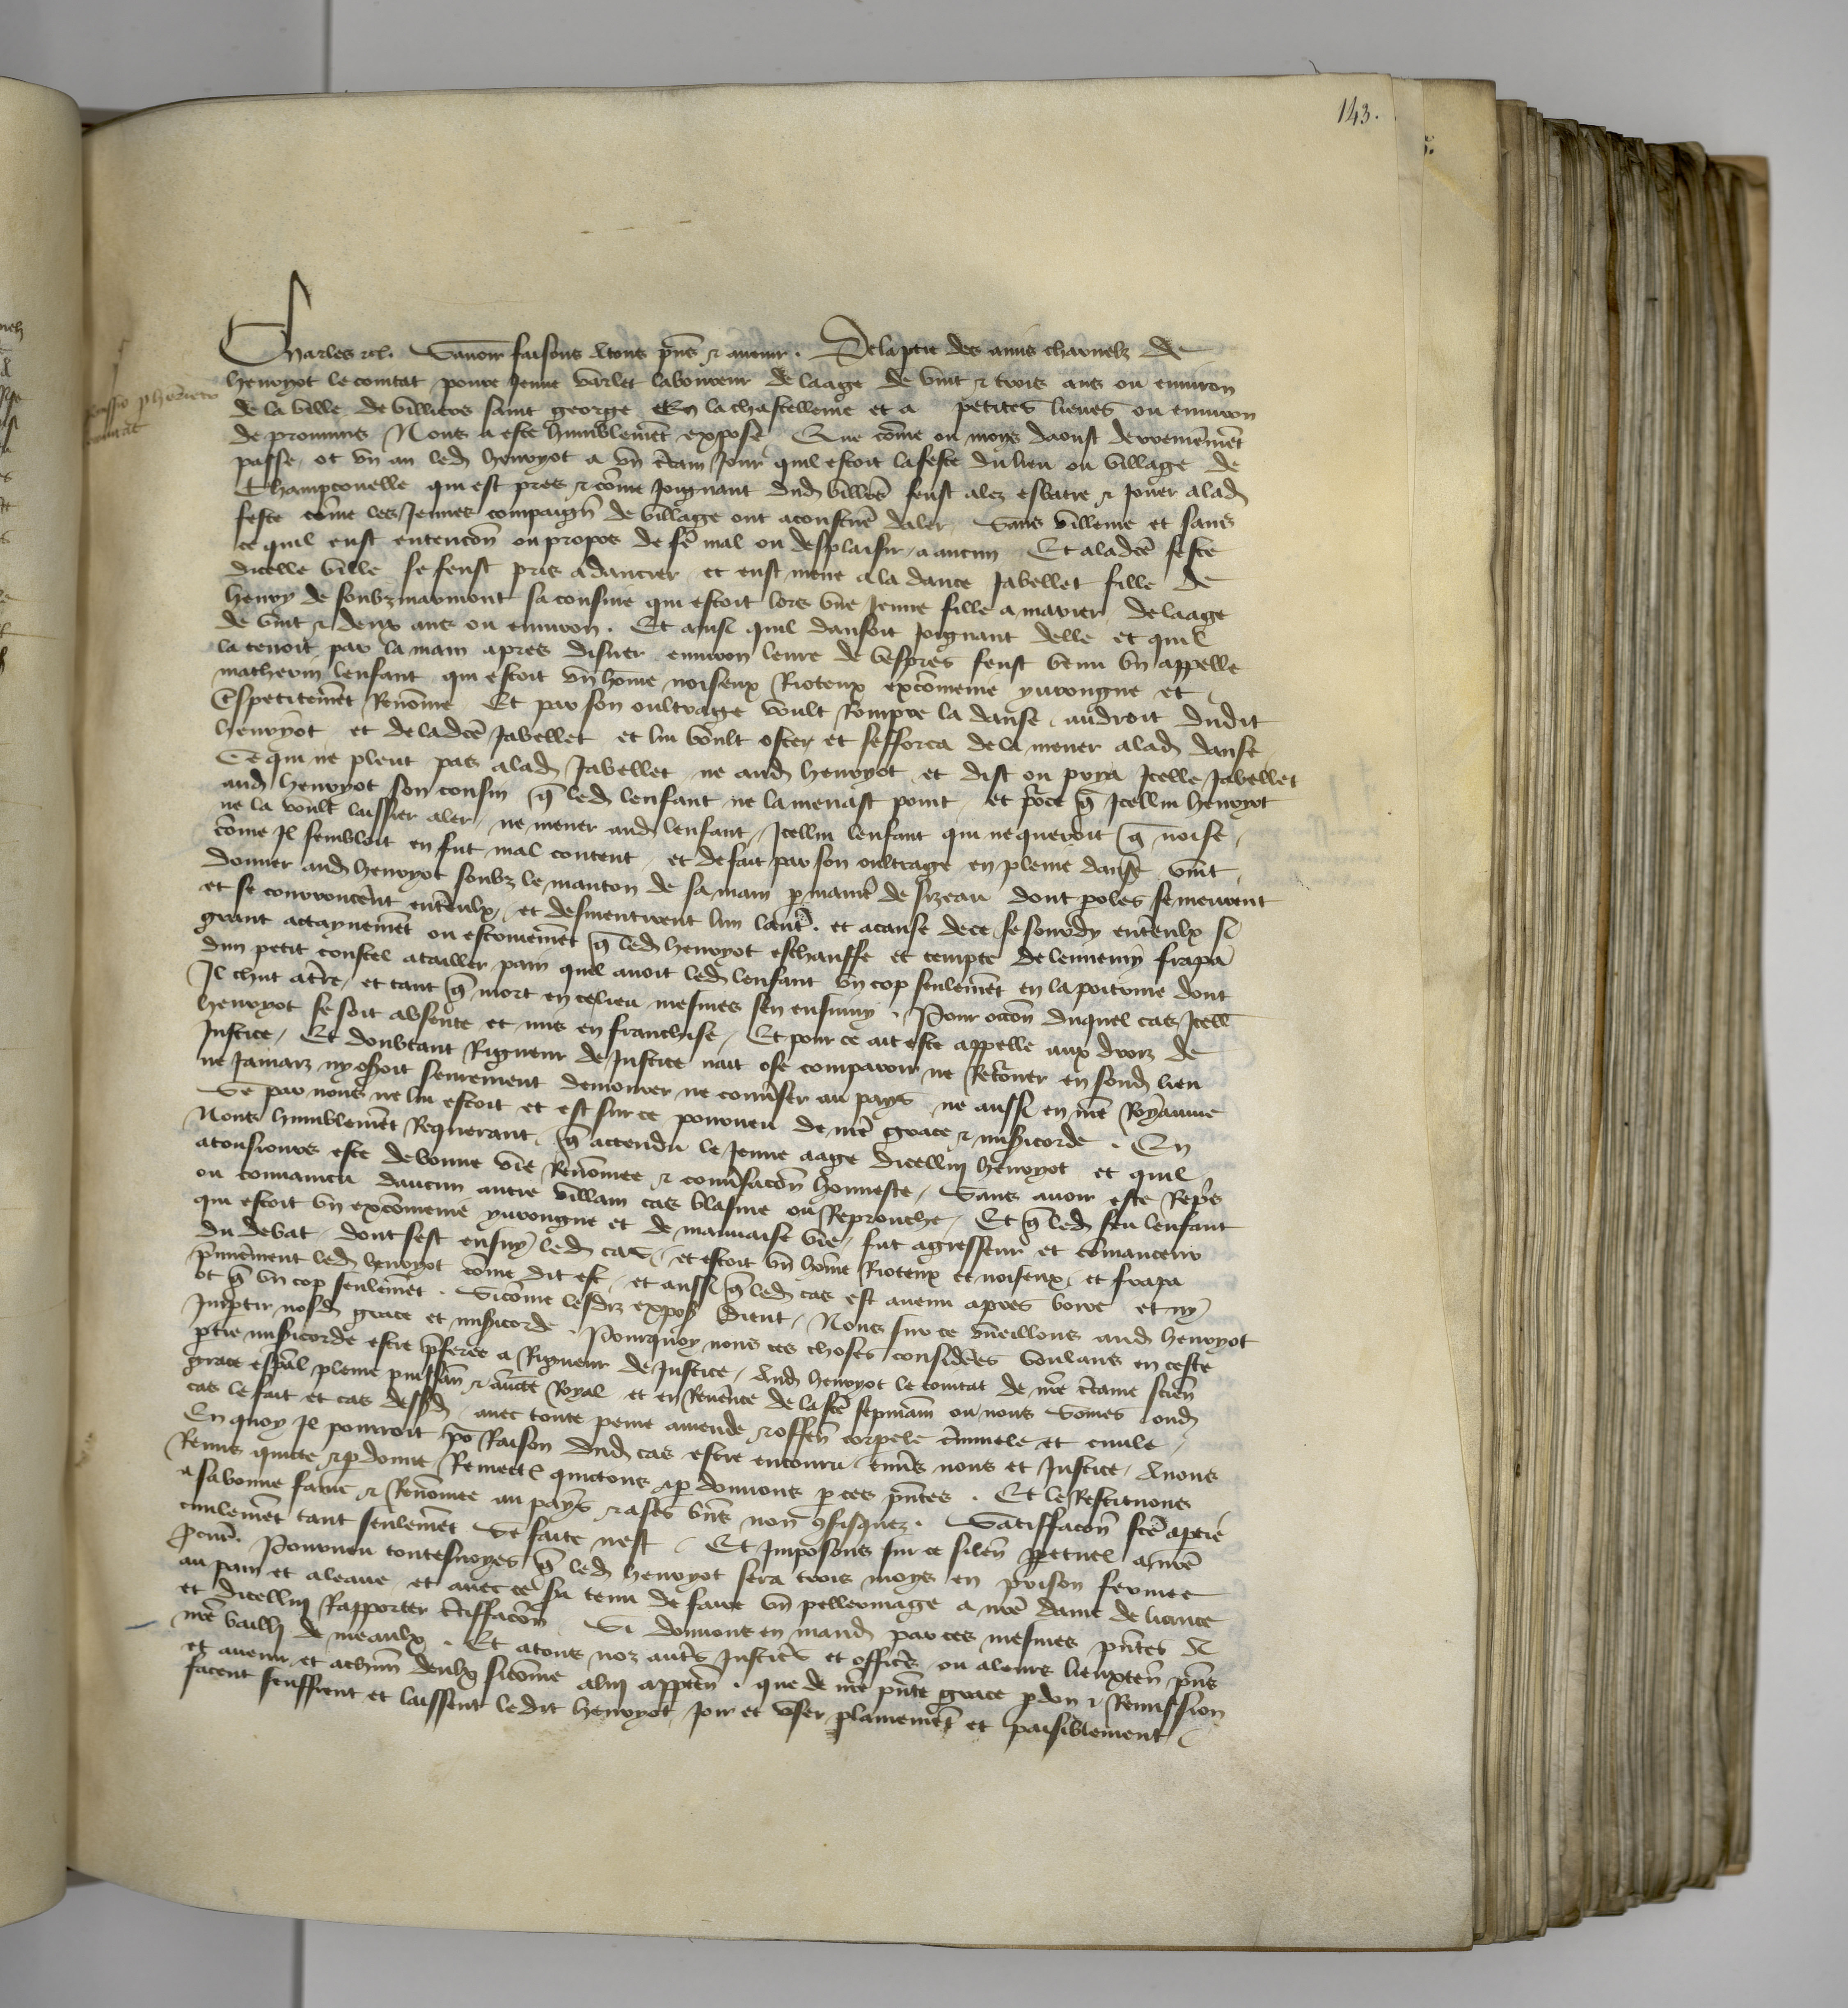 143.
Charles etc. Savoir faisons atous pñs & avenir. De la ptie des amis charnelz de
henryot le comtat povre Jeune varlet laboureur de laage de vint & trois ans ou environ
de la ville de villiers saint george En la chastellenie et a petites lieues ou environ
de prouvins Nous a este humblemēt expose Que cōme ou moys daoust derrenieremēt
passe ot vn an led henryot a vn c̃tain Jour quil estoit la feste du lieu ou village de
Champcouelle qui est pres & cōme Joignant dud villers feust alez esbatre & Jouer alad
feste cōme les Jeunes compaignōs de village ont acoustumē daler Sans villenie et sans
ce quil eust entencōn ou propos de fe mal ou desplaisir a aucun Et aladcē feste
dicelle ville se feust pris a dancier et eust mene a la dance Jabellet fille de
henry de soubzmarmont sa cousine qui estoit lors vne Jeune fille a marier de laage
de vint & deux ans ou environ. Et ainsi quil dansoit Joignant delle et quil
la tenoit par la main apres disner environ leure de vespres feust venu vn appelle
matherin lenfant qui estoit vn hōme noiseux Rioteux excōmenie yvrongne et
Et par son oultrage voult Rompre la danse audroit dudit
henryot et de ladcē Jabellet et lui voult oster et sefforca de la mener alad danse
Ce qui ne pleut pas alad Jabellet ne aud henryot et dist ou prya Icelle Jabellet
aud henryot son cousin q̄ led lenfant ne la menast point et pour ce q̄ Icellui henryot
ne la voult laissier aler ne mener aud lenfant Icellui lenfant qui ne queroit q̄ noise
cōme Il sembloit en fut mal content et defait par son oultrage en pleine danse vint
donner aud henryot soubz le manton de sa main p maniē de sizeau dont poles se meurent
et se courroucerēt entreulx et desmentirent lun lautre. et acause dece se sourdy entreulx si
grant attaynemēt ou esmouvemēt q̄ led henryot eschauffe et tempte de lennemy frapa
dun petit coustel a tailler pain quil avoit led lenfant vn cop seulemēt en la poitrine dont
Il chut atrē et tant q̄ mort en ce lieu mesmes sen ensuivy. Pour occōn duquel cas Icell
henryot se soit absente et mis en franchise Et pour ce ait este appelle aux drois de
Justice Et doubtant Rigueur de Justice nait ose comparoir ne Retorner en sond lieu
ne Jamais ny oseroit seurement demourer ne conuserser au pays ne aussi en nrē Royaume
Se par nous ne lui estoit et est sur ce pourveu de nrē grace & misericorde. En
Nous humblemēt Requerant q̄ attendu le Jeune aage dicelluy henryot et quil
atousiours este de bonne vie Renōmee & conusacōn honneste Sans avoir este Repris
ou convaincu daucun autre villain cas blasme ou Reprouche Et q̄ led feu lenfant
qui estoit vn excōmenie yvrongne et de mauvaise vie fut agresseur et cōmanceur
du debat dont sest ensuy led cas et estoit vn hōme Rioteux et noiseux et frapa
p̄mierement led henryot cōme dit est et aussi q̄ led cas est avenu apres boire et ny
ot q̄ vn cop seulemēt. Si cōme lesdiz exposs dient Nous sur ce vueillons aud henryot
Impartir nosd grace et misericorde. Pourquoy nous ces choses considerees voulans en ceste
ptie misericorde estre p̄feree a Rigueur de Justice Aud henryot le comtat de nrē c̃taine sciēn
grace esp̄al pleine puissān & aucte Royal et en Reverēce de la scē sepmain ou nous Sōmes oud
cas le fait et cas dessusd avec toute peine amende & offens corpele c̃iminele et civile
En quoy Il pourroit p̄ Raison dud cas estre encouru envers nous et Justice Avons
Remis quicte & pdonne Remectōs quictons & pdonnons p ces pñtes. Et le Restituons
a sa bonne fame & Renōmee au pays & a ses biens non 9fisquez. Satisfacōn fcē aptie
civilemēt tant seulemēt Se faite nest. Et Imposons sur ce silēn perpetuel a nrē
pcur̃. Pourveu toutesvoyes q̄ led henryot sera trois moys en prison fermee
au pain et aleaue et avecce sera tenu de faire vn pellerinage a nrē dame de liance
et dicelluy Rapporter c̃tifficacōn Si donnons en mand par ces mesmes pñtes Au
nrē bailli de meaulx. Et atous noz autres Justiciers et officiers ou a leurs lieuxten pñs
et avenir et achūn deulx sicōme aluy appten. que de nrē pñte grace pdon & Remission
facent seuffrent et laissent ledit henryot Joir et vser plainemēt et paisiblement